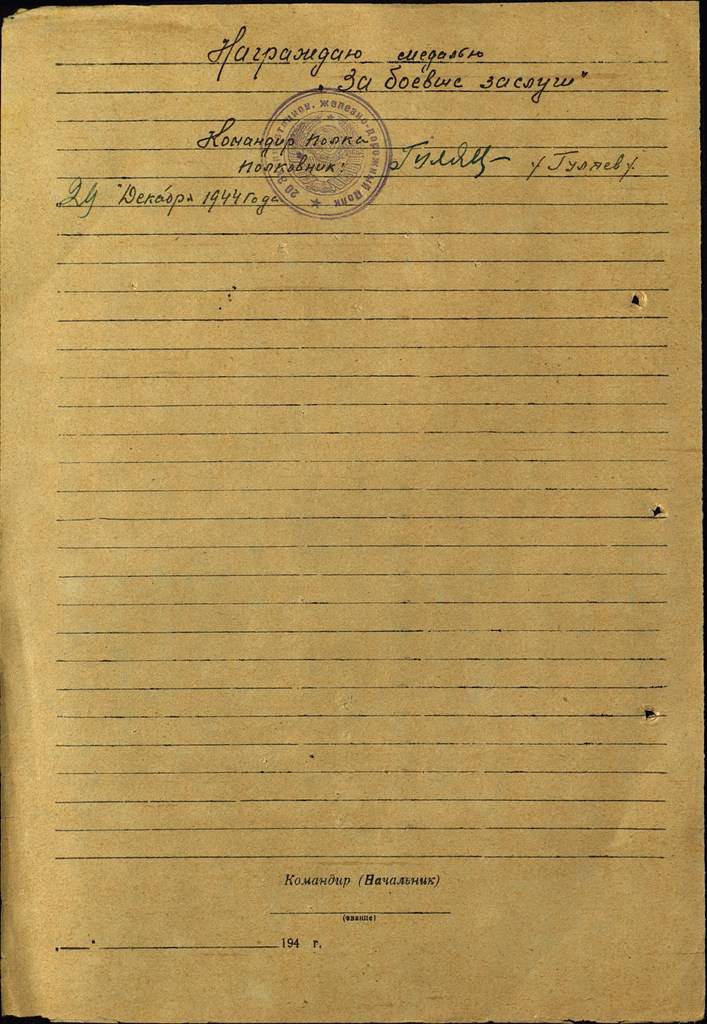 Награждаю медалью
"За боевые заслуги"
Командир Полка
Полковник: Гуляев /Гуляев/.
29 "Декабря 1944 года
железно-дорожный Полк
Командир (Начальник)
(звание)
194 г.